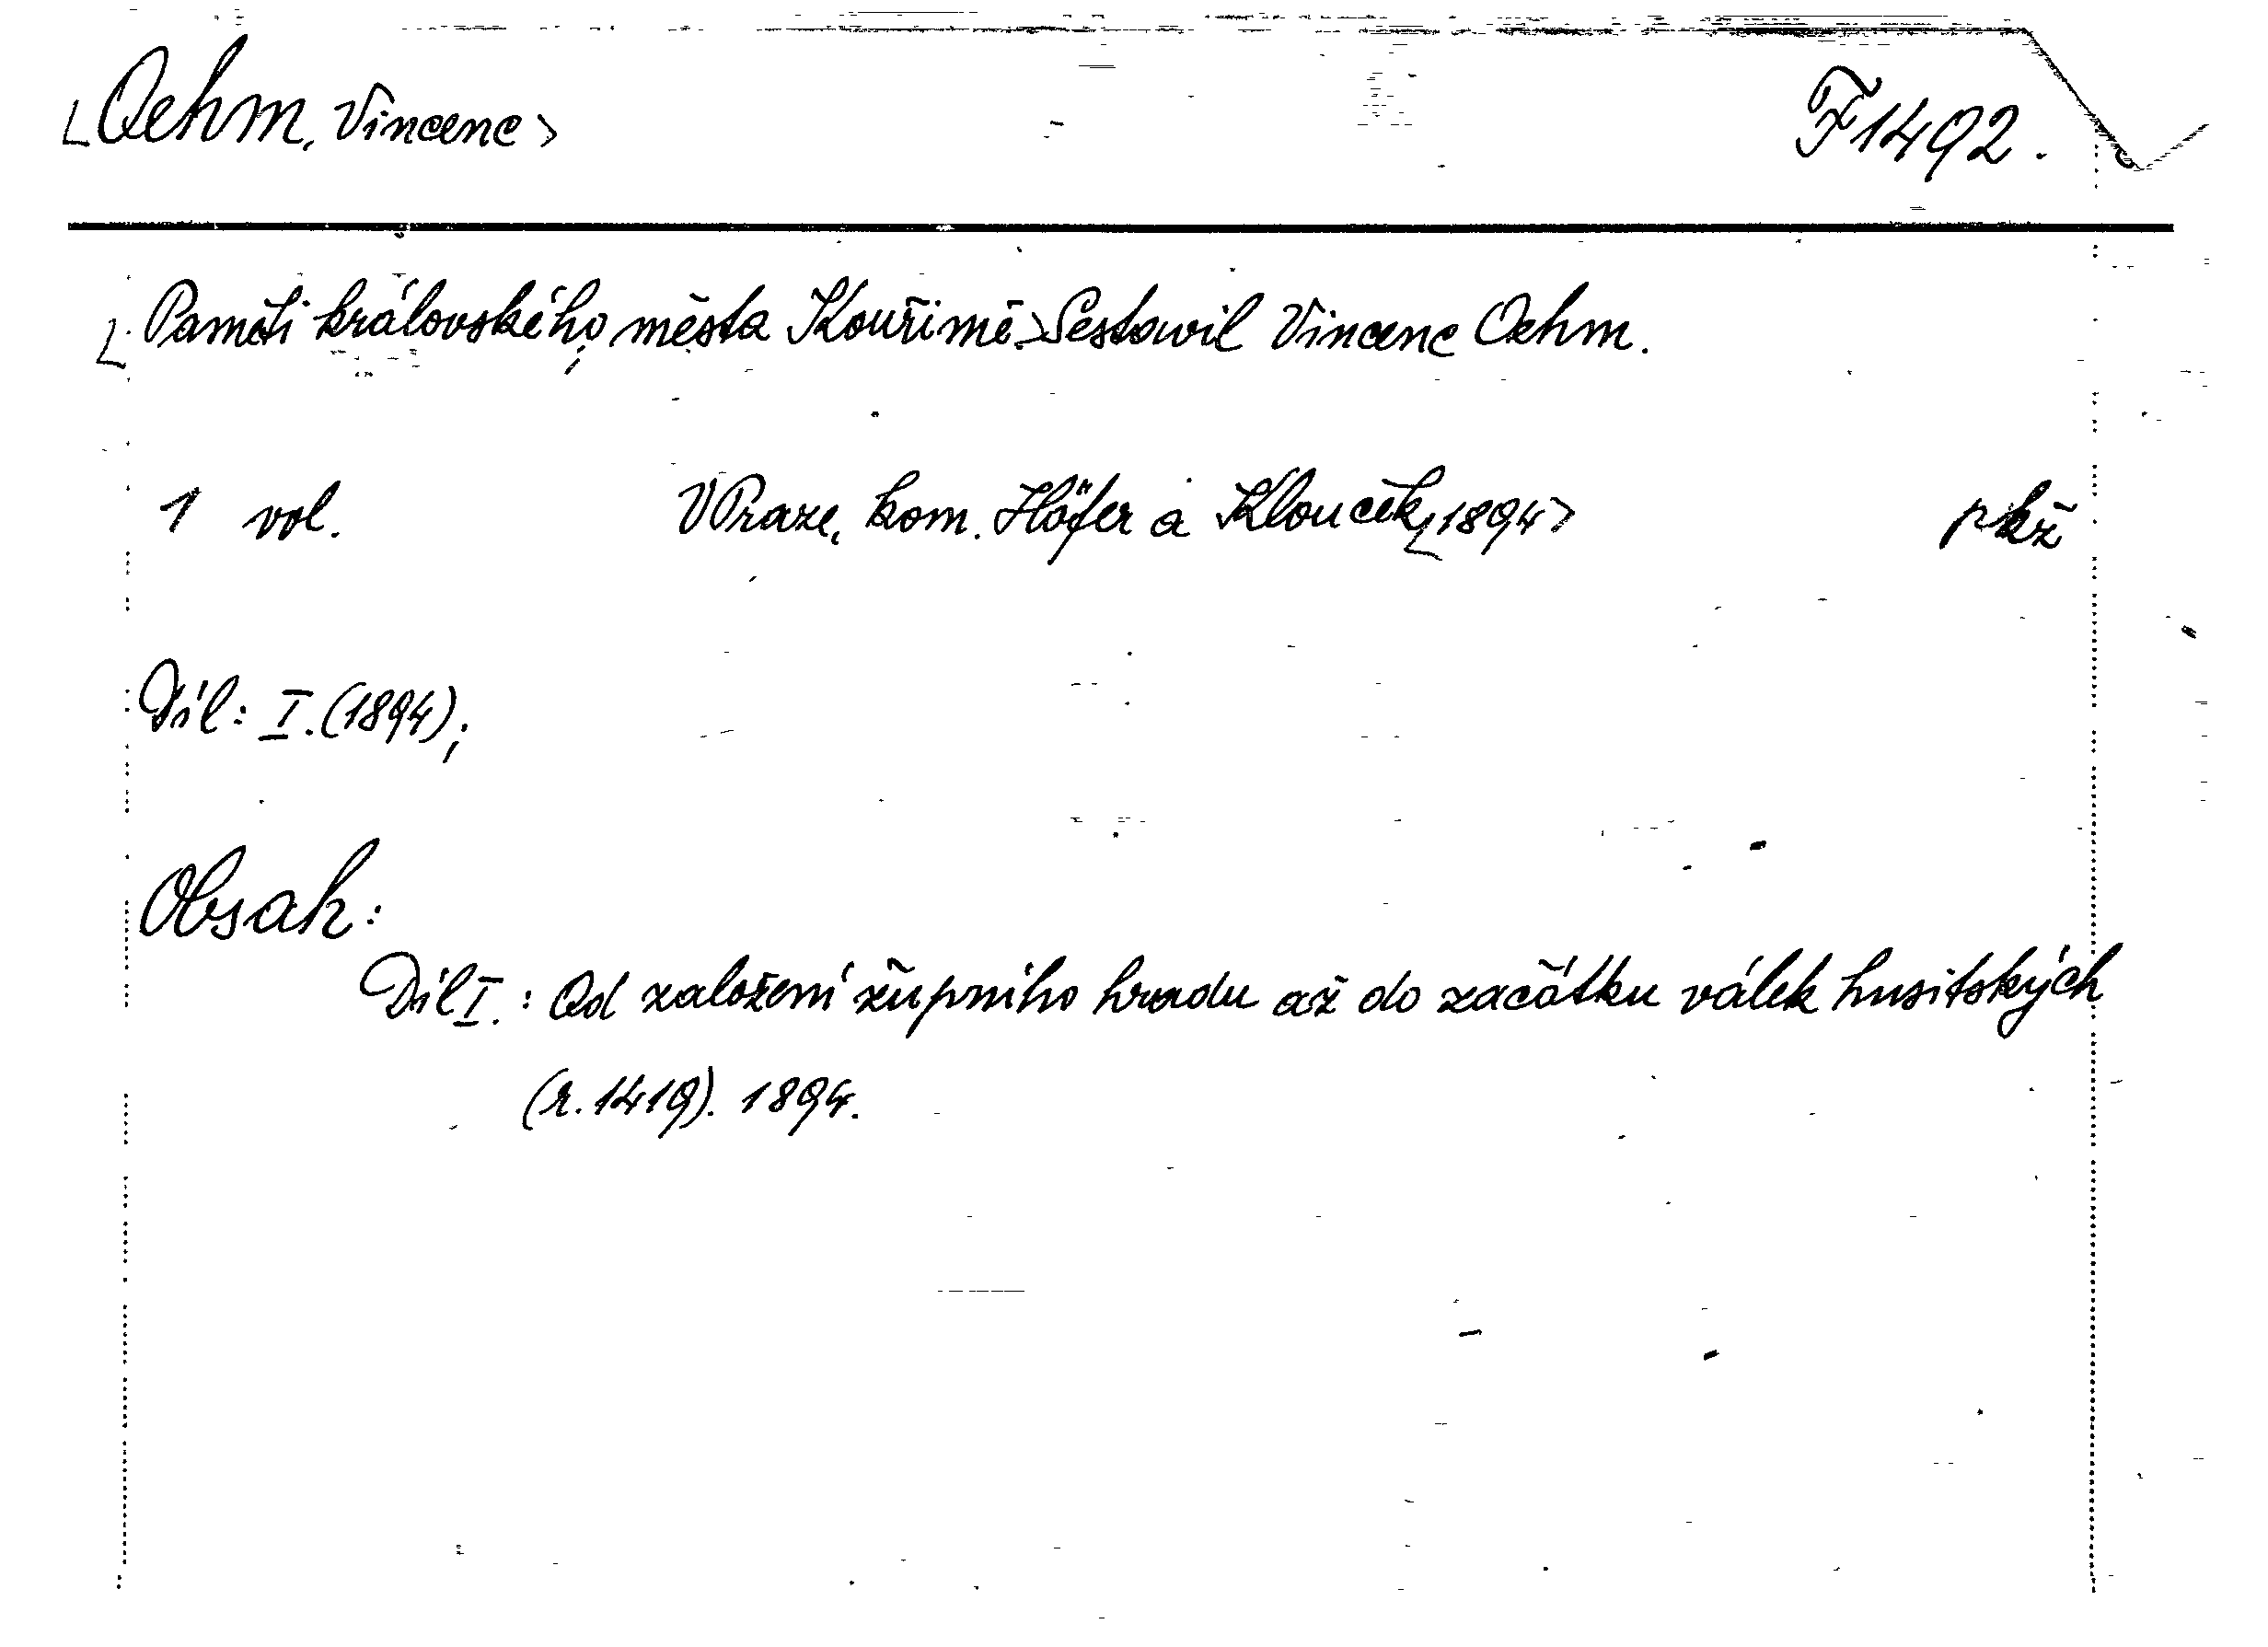 <Oehm, Vincenc> F 1492.
<Paměti královského města Kouřimě.> Sestavil Vincenc Oehm.
1 vol. V Praze, kom. Höfer a Klouček <1894> pkž
Díl: I. (1894);
Obsah:
Díl I.: Od založení župního hradu až do začátku válek husitských
(r. 1419). 1894.